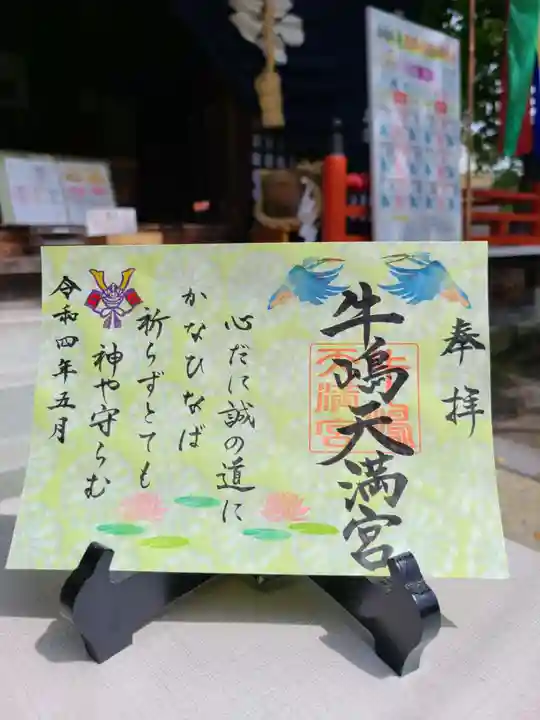 奉拝
牛嶋天満宮
心だに誠の道に
かなひなば
祈らずとても
神や守らむ
令和四年五月